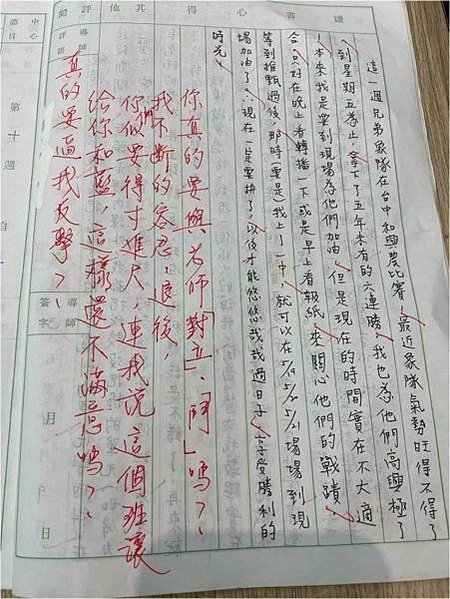 讀書心得
其他
閱評
導師評語
簽導字師
月
日
中心德目
第十週
這一週兄弟象隊在台中和興農比賽,最近象隊氣勢旺得不得了
,到星期五為止,拿下了五年未有的六連勝,我也為他們高興極了
!本來我是要到現場為他們加油,但是現在的時間實在不大適
合,只好在晚上看轉播一下或是早上看報紙,來關心他們的戰蹟。
等到推甄過後,那時(要是)我上了一中,就可以在5/19、5/20、5/21場場到現
場加油了!現在一定要拼了,以後才能悠悠哉哉過日子,享受勝利的
時光!
你真的要與老師「對立」、「鬥」嗎?
我不斷的容忍、退後,
你們要得寸進尺,連我說這個班讓
給你和藍,這樣還不滿意嗎?
真的要逼我反擊?!